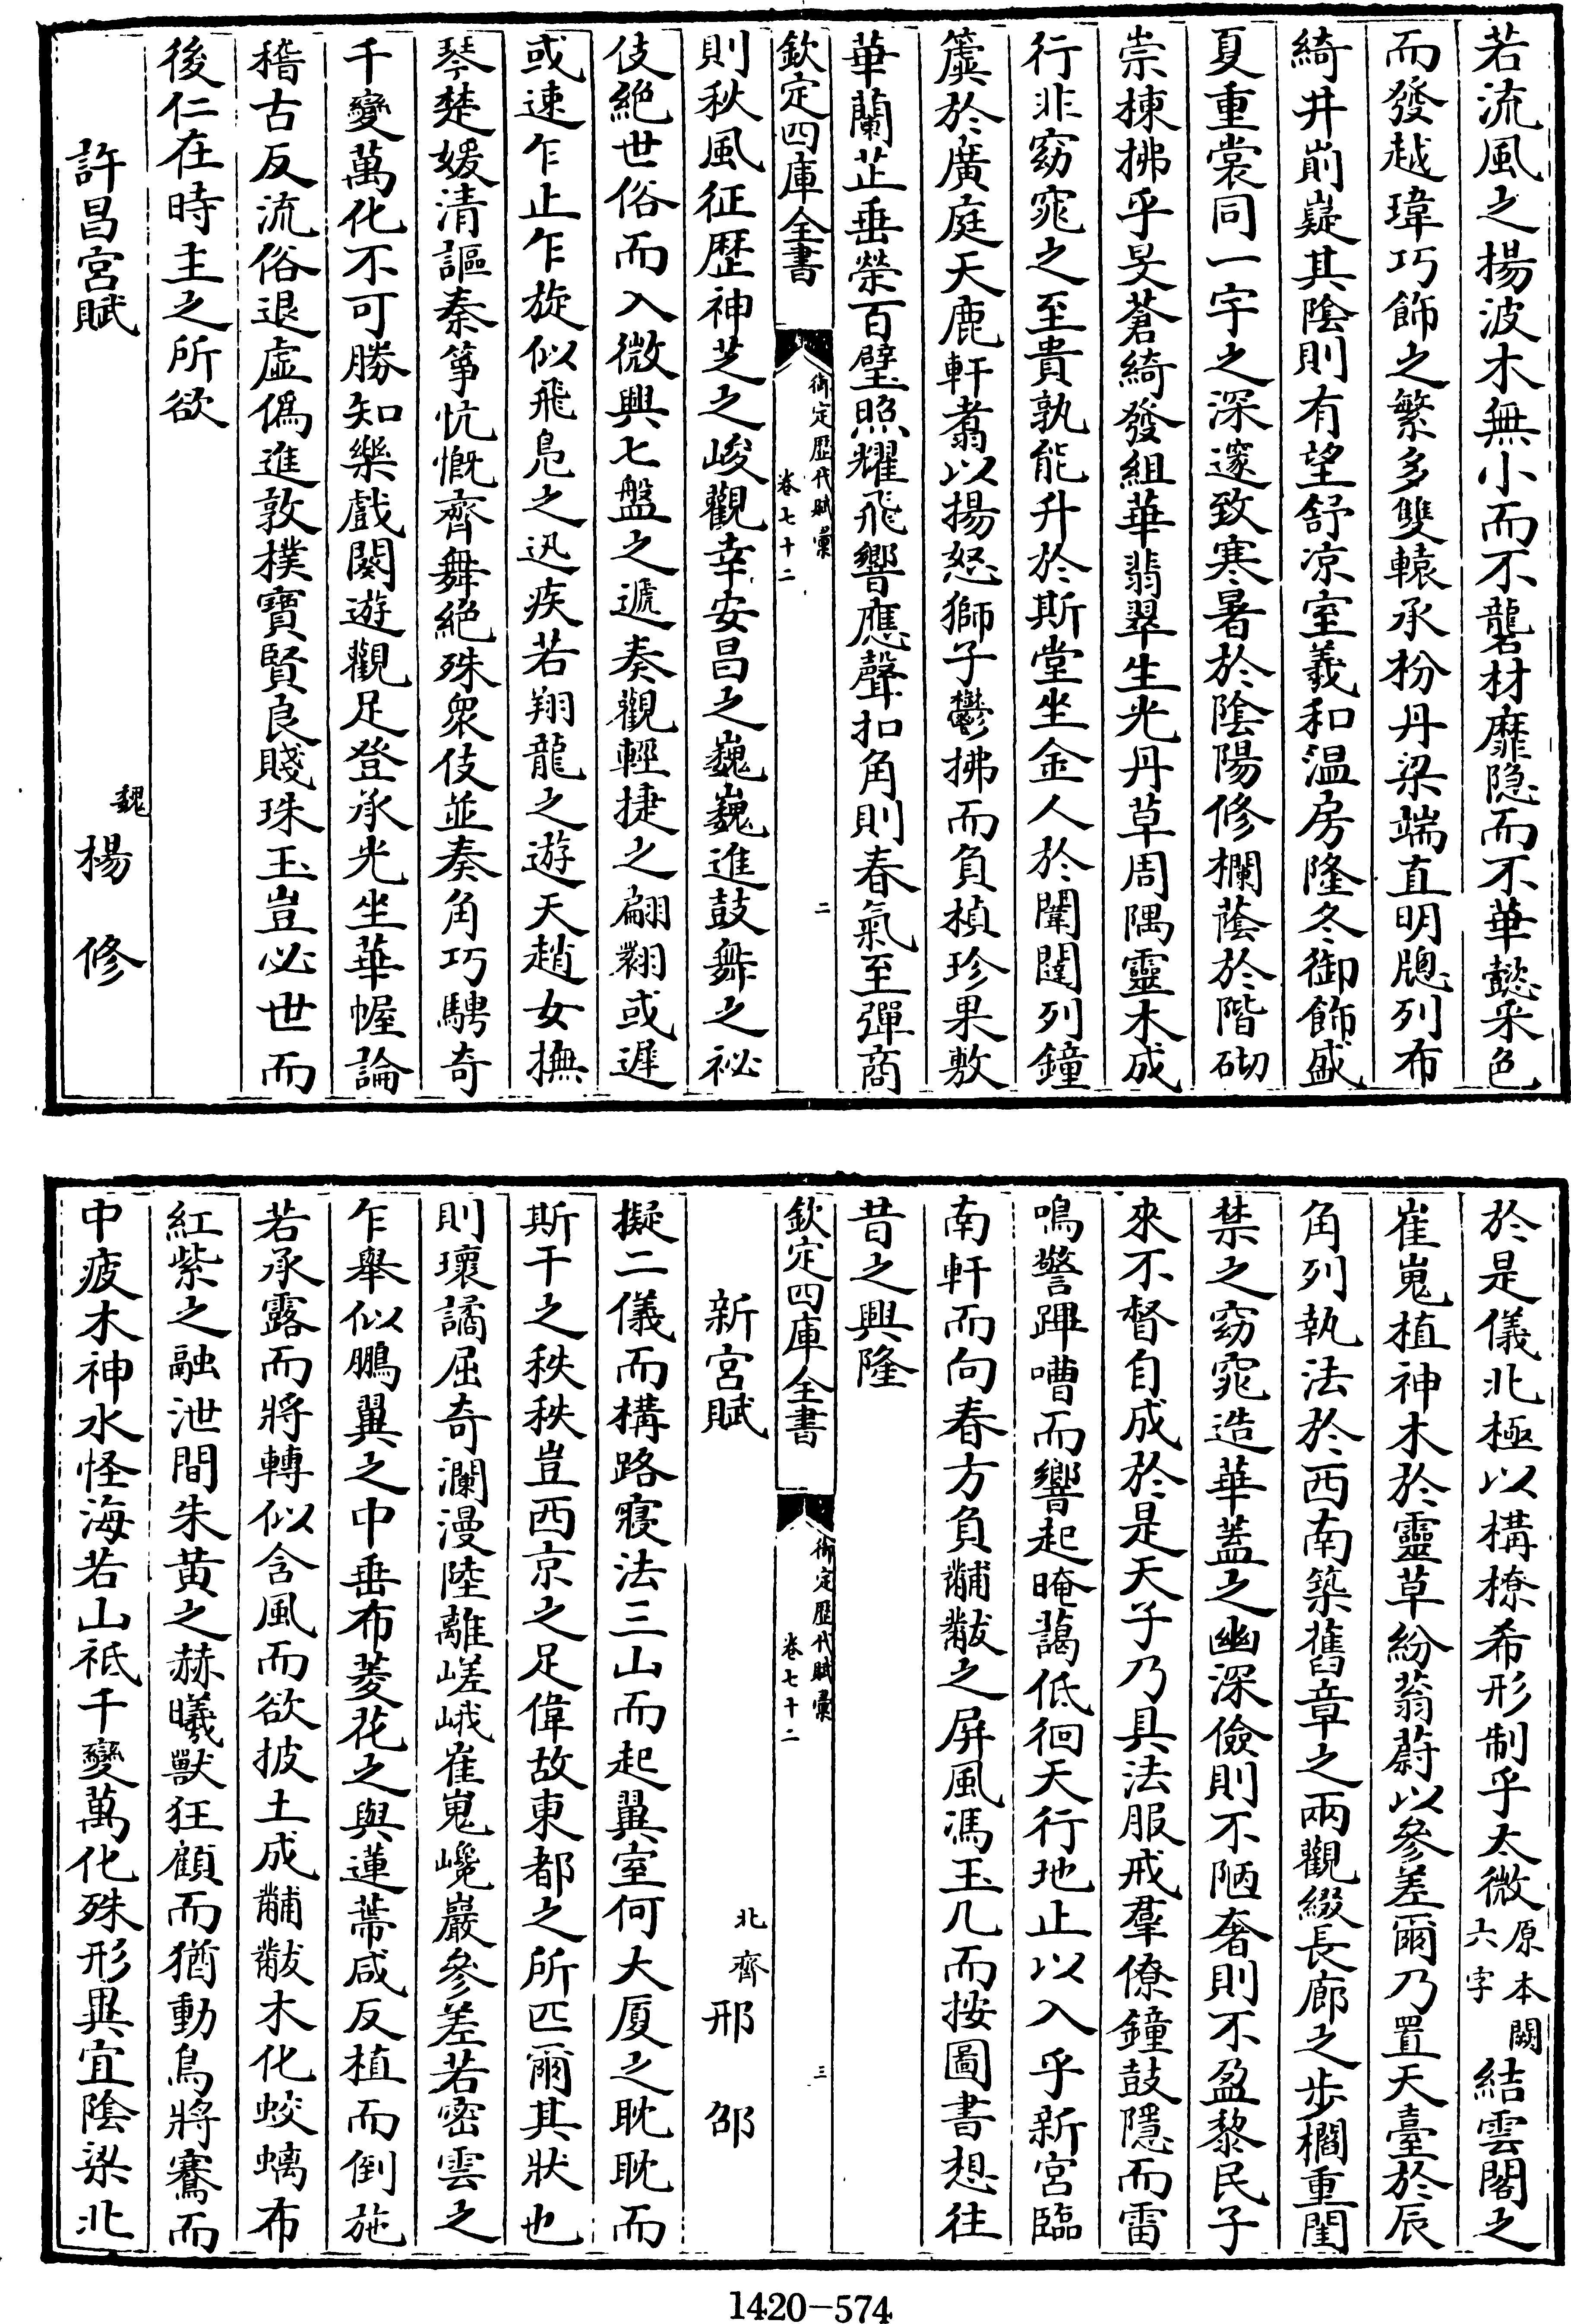 若流風之揚波木無小而不礱材靡隱而不華懿采色
而發越瑋巧飾之繁多雙轅承枌丹梁端直明牕列布
綺井崱嶷其陰則有望舒凉室羲和温房隆冬御飾盛
夏重裳同一宇之深邃致寒暑於陰陽修欄蔭於階砌
崇棟拂乎旻蒼綺發組華翡翠生光丹草周隅靈木成
行非窈窕之至貴孰能升於斯堂坐金人於闈闥列鐘
簴於廣庭天鹿軒翥以揚怒獅子鬱拂而負楨珍果敷
華蘭芷垂榮百璧照耀飛響應聲扣角則春氣至彈商
欽定四庫全書
御定歷代賦彙
卷七十二
二
則秋風征歷神芝之峻觀幸安昌之巍巍進鼓舞之祕
伎絶世俗而入微興七盤之遞奏觀輕捷之翩翾或遲
或速乍止乍旋似飛鳧之迅疾若翔龍之遊天趙女撫
琴楚媛清謳秦箏忼慨齊舞絶殊衆伎並奏角巧騁奇
千變萬化不可勝知樂戲闋遊觀足登承光坐華幄論
稽古反流俗退虚僞進敦樸寶賢良賤珠玉豈必世而
後仁在時主之所欲
許昌宮賦
魏楊修
於是儀北極以構橑希形制乎太微原本闕六字結雲閣之
崔嵬植神木於靈草紛蓊蔚以參差爾乃置天臺於辰
角列執法於西南築舊章之兩觀綴長廊之步櫩重闈
禁之窈窕造華蓋之幽深儉則不陋奢則不盈黎民子
來不督自成於是天子乃具法服戒羣僚鐘鼓隱而雷
鳴警蹕嘈而響起晻藹低徊天行地止以入乎新宮臨
南軒而向春方負黼黻之屏風馮玉几而按圖書想往
昔之興隆
欽定四庫全書
御定歷代賦彙
卷七十二
三
新宮賦
北齊邢邵
擬二儀而構路寢法三山而起翼室何大厦之耽耽而
斯干之秩秩豈西京之足偉故東都之所匹爾其狀也
則瓌譎屈奇瀾漫陸離嵯峨崔嵬巉巖參差若密雲之
乍舉似鵬翼之中垂布菱花之與蓮蔕咸反植而倒施
若承露而將轉似含風而欲披土成黼黻木化蛟螭布
紅紫之融泄間朱黄之赫曦獸狂顧而猶動鳥將騫而
中疲木神水怪海若山祇千變萬化殊形異宜陰梁北
1420-574